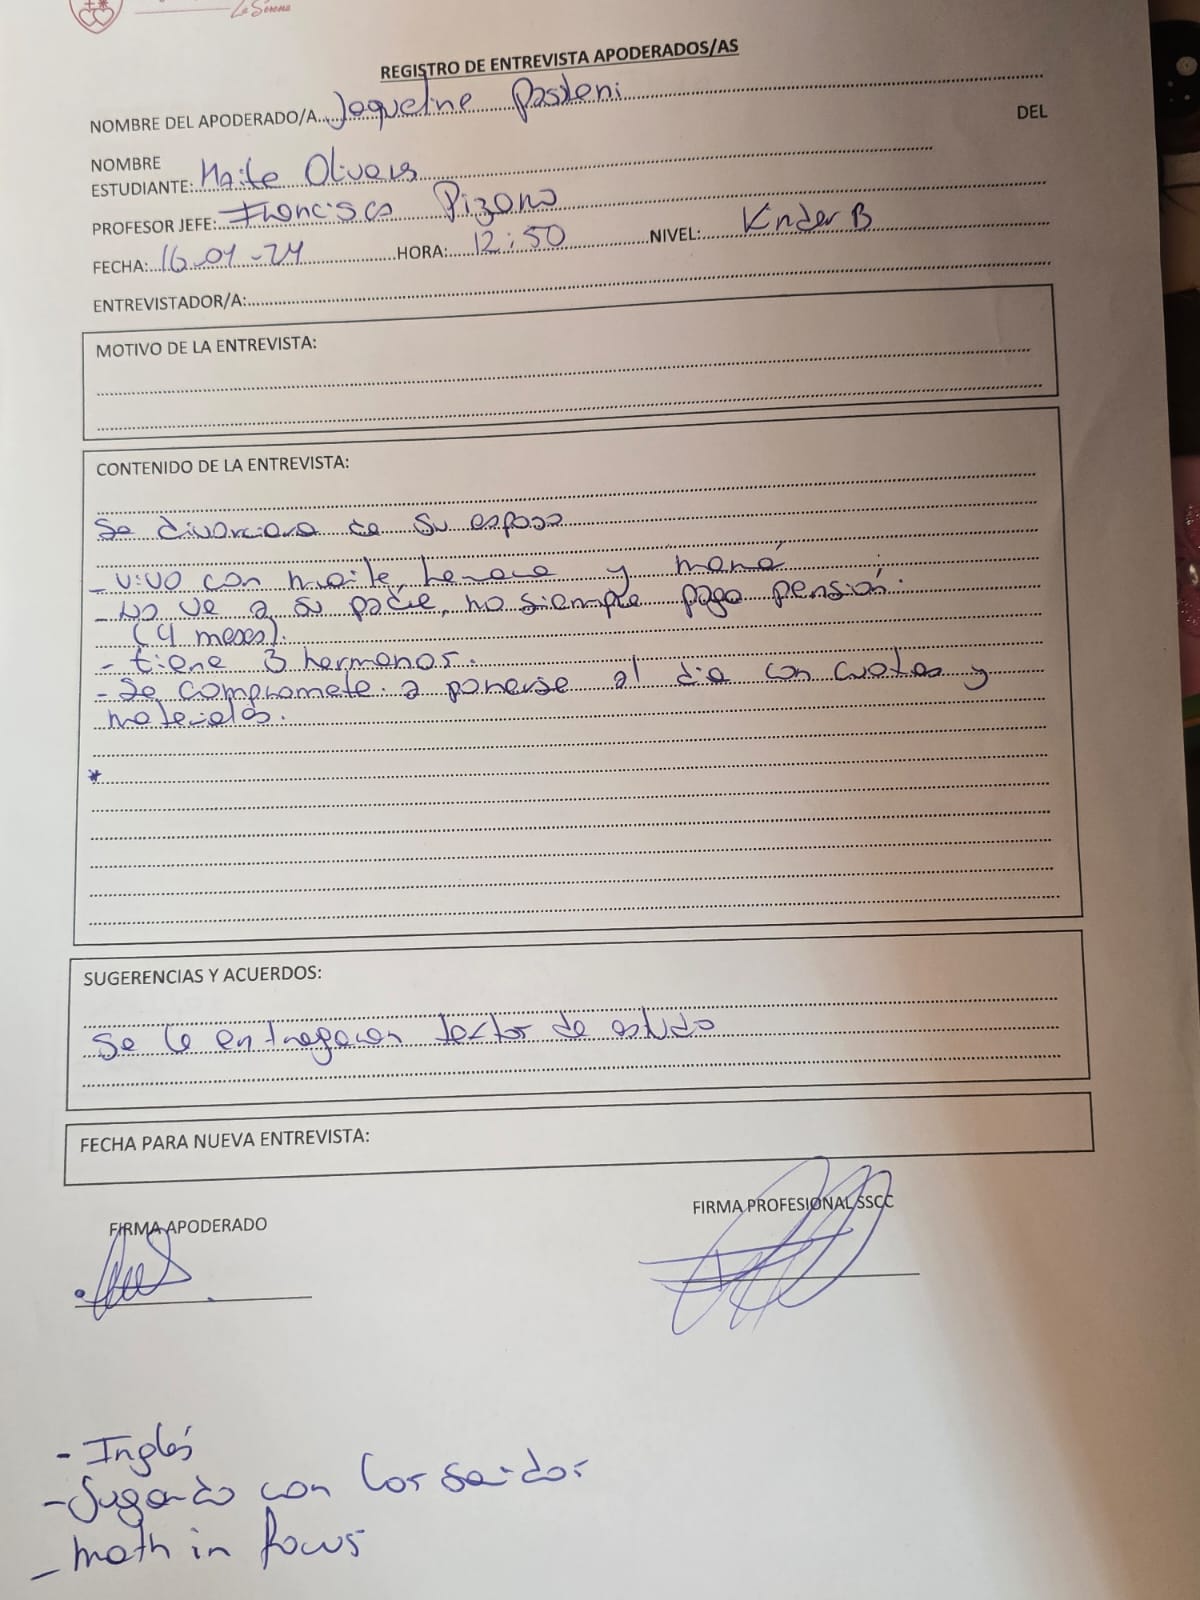 La Serena
REGISTRO DE ENTREVISTA APODERADOS/AS
NOMBRE DEL APODERADO/A Jaqueline Pasteni
NOMBRE DEL
ESTUDIANTE: Maite Olivares
PROFESOR JEFE: Francisca Pizarro
FECHA: 16-01-24 HORA: 12:50 NIVEL: Kinder B
ENTREVISTADOR/A:
MOTIVO DE LA ENTREVISTA:
CONTENIDO DE LA ENTREVISTA:
Se divorciara de su esposo
- vivo con maite, y mamá
- No ve a su padre, no siempre paga pensión.
(4 meses).
- tiene 3 hermanos.
- Se compromete a ponerse al dia con cuotas y
materiales.
*
SUGERENCIAS Y ACUERDOS:
Se le entregaran textos de estudio
FECHA PARA NUEVA ENTREVISTA:
FIRMA APODERADO
FIRMA PROFESIONAL SSCC
- Inglés
- Jugando con los sonidos
- math in focus